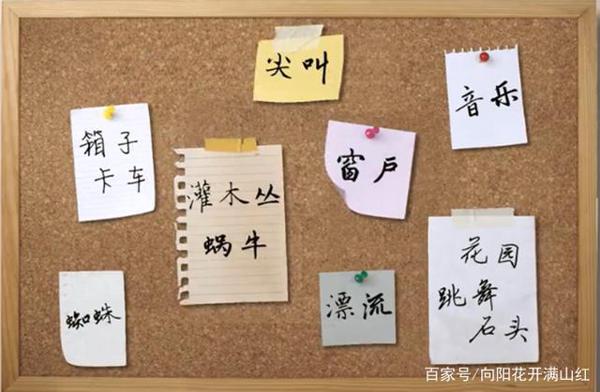 尖叫
音乐
箱子
卡车
灌木丛
蜗牛
窗户
花园
跳舞
石头
蜘蛛
漂流
百家号/向阳花开满山红